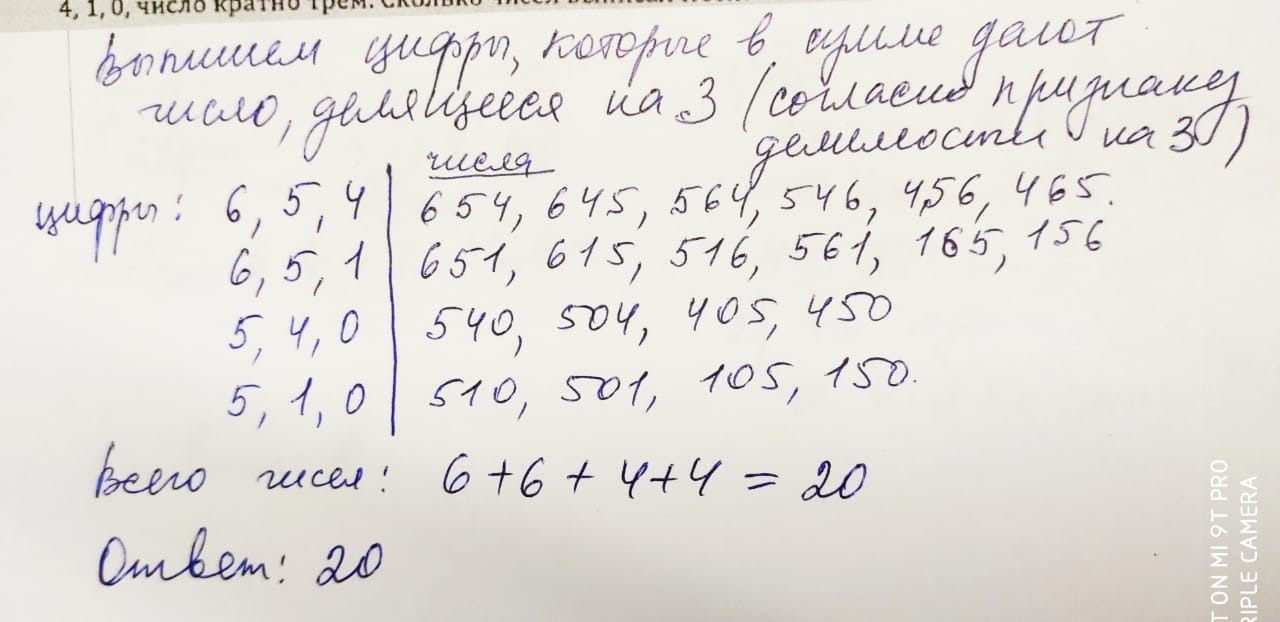 4, 1, 0, число кратно трем. Сколько чисел
Выпишем цифры, которые в сумме дают
число, делящееся на 3 (согласно признаку
делимости на 3)
числа
цифры: 6, 5, 4 | 654, 645, 564, 546, 456, 465.
6, 5, 1 | 651, 615, 516, 561, 165, 156
5, 4, 0 | 540, 504, 405, 450
5, 1, 0 | 510, 501, 105, 150.
Всего чисел: 6+6+4+4 = 20
Ответ: 20
T ON MI 9T PRO
RIPLE CAMERA